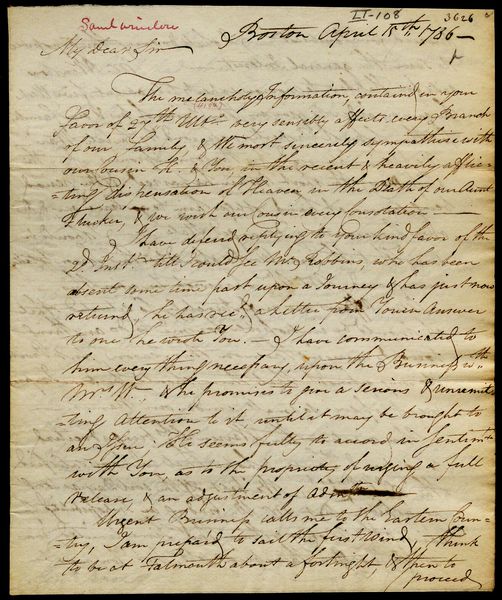 II-108 3626
Saml winslow
My Dear Sir Boston April 15th. 1786—
The melancholy Information, contained in your
favor of 27th Ulto. very sensibly affects every Branch
of our Family, & the most sincerely sympathise with
our Cousin K. & You, in the recent & heavily afflic-
=ting dispensation of Heaven in the Death of our Aunt
Flucker, & we wish our Cousin every consolation —
I have defered replying to your kind favor of the
2d. Inst. till I could see Mr. Robbins, who has been
absent some time past upon a Journey & has just now
returned, he has recd. a Letter from You in Answer
to one he wrote You. — I have communicated to
him every thing necessary, upon the Business wth.
Mrs. W. & he promises to give a serious & unremit-
=ting Attention to it until it may be brought to
an Issue. He seems fully to accord in Sentimts.
with You, as to the propriety of urging a full
release, & an adjustment of
Urgent Business calls me to the Eastern Coun-
=try, I am prepared to sail the first Wind, think
to be at Falmouth about a fortnight, & then to
proceed